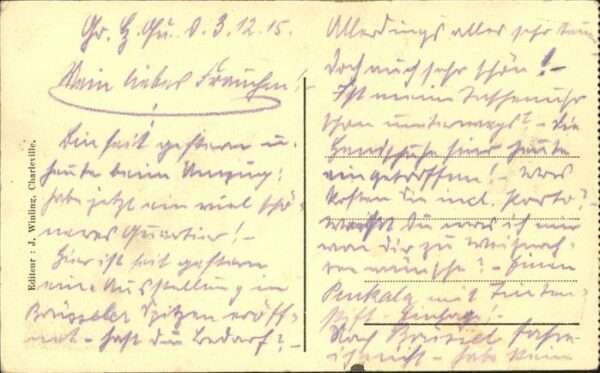 Gr. H. Qu. d. 3.12.15.
Mein liebes Frauchen!
Bin seit gestern u.
heute beim Umzug;
habe jetzt ein viel schö-
neres Quartier! -
Hier ist seit gestern
eine Ausstellung in
Brüsseler Spitzen eröff-
net - hast du Bedarf? -
Allerdings alles sehr
doch auch sehr schön! -
Ist meine Taschenuhr
schon unterwegs? - Die
Handschuhe sind heute
eingetroffen! - Was
kosten Sie incl. Porto?
Weißt Du was ich mir
von Dir zu Weihnach-
ten wünsche? - Einen
Penkala mit Tinten-
stift
Nach Brüssel fahre
ich nicht - habe kein
Editeur : J. Winling, Charleville.